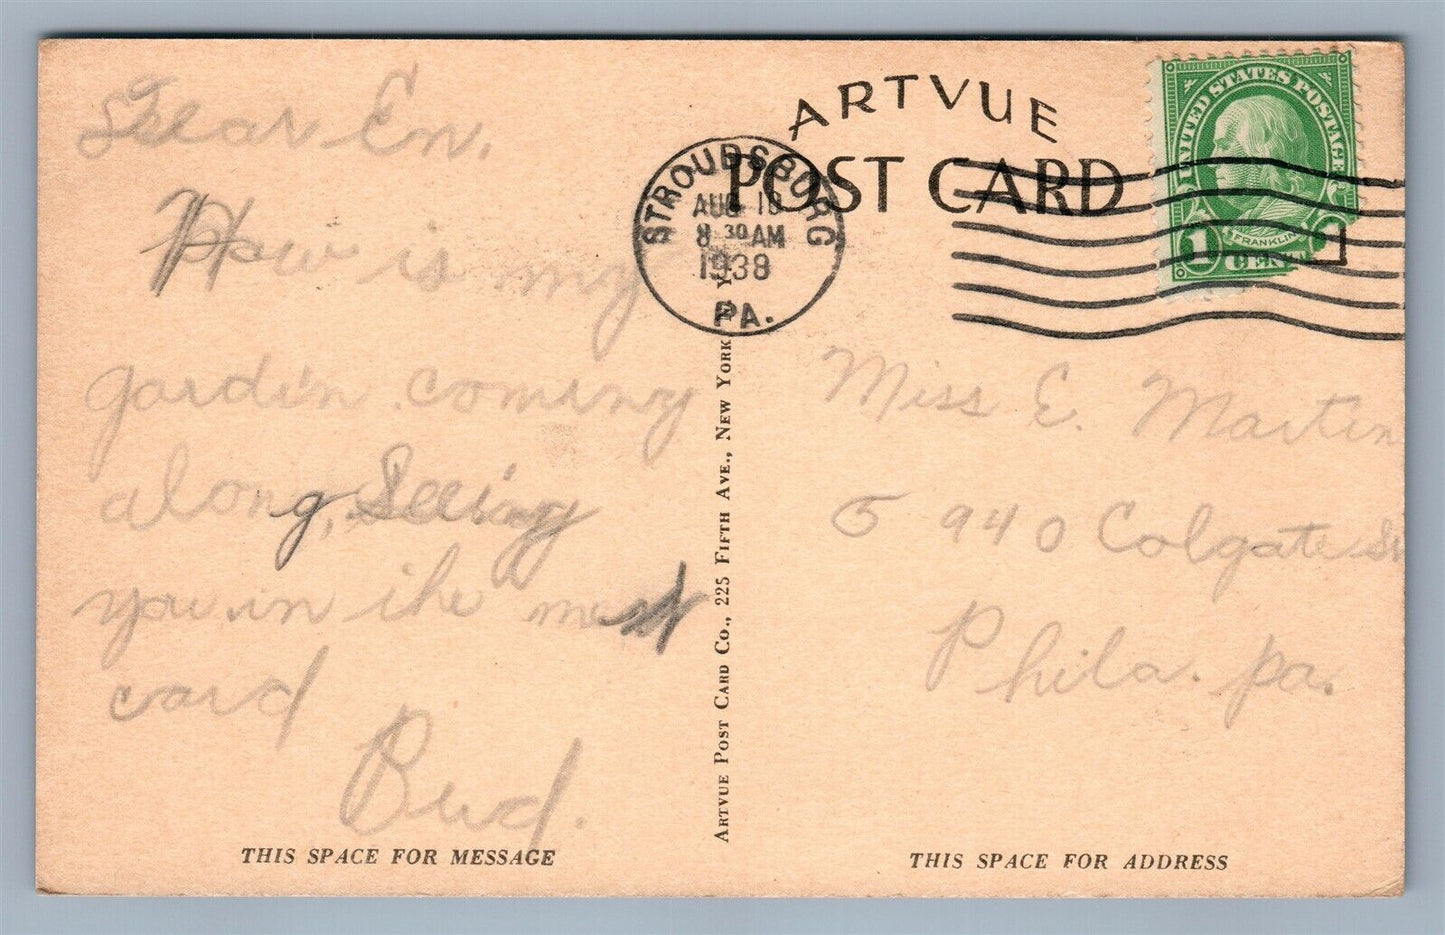 Dear En.
How is my
gardin coming
along, Seeing
you in the next
card
Bud.
THIS SPACE FOR MESSAGE
ARTVUE POST CARD CO., 225 FIFTH AVE., NEW YORK
ARTVUE
POST CARD
STROUDSBURG
AUG 10
8 30 AM
1938
PA.
UNITED STATES POSTAGE
FRANKLIN
1 CENT 1
Miss E. Martin
5940 Colgate St
Phila. Pa.
THIS SPACE FOR ADDRESS